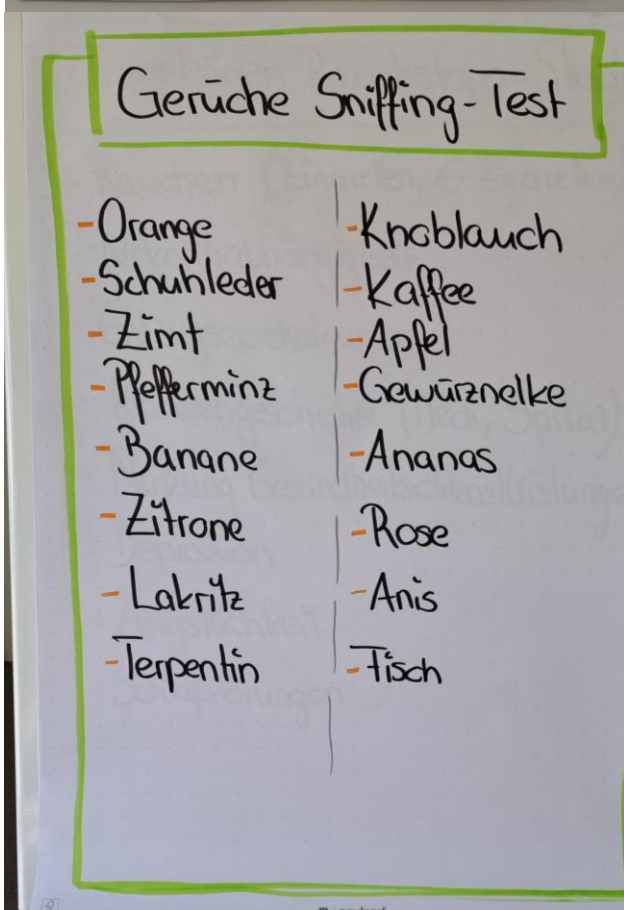 Gerüche Sniffing-Test
-Orange
-Schuhleder
-Zimt
-Pfefferminz
-Banane
-Zitrone
-Lakritz
-Terpentin
-Knoblauch
-Kaffee
-Apfel
-Gewürznelke
-Ananas
-Rose
-Anis
-Fisch